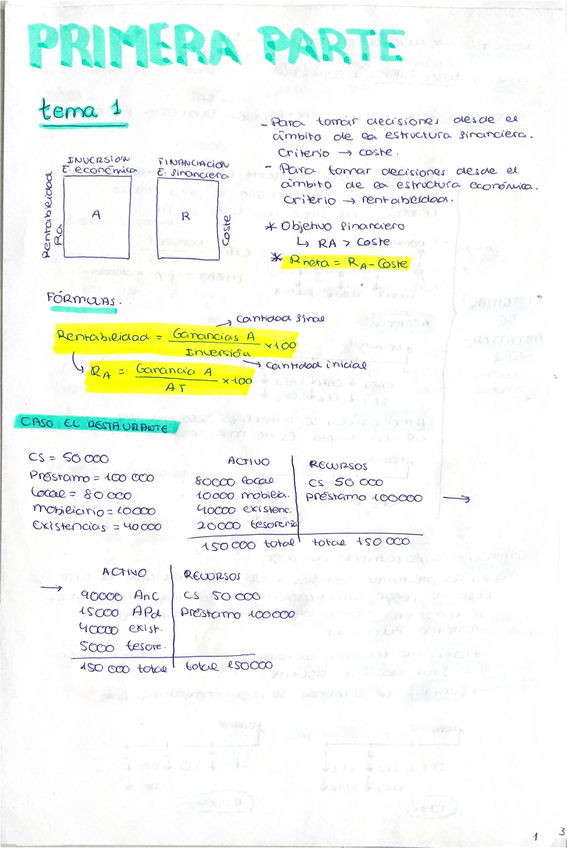 PRIMERA PARTE
tema 1
- Para tomar decisiones desde el
ámbito de la estructura financiera.
Criterio → coste.
- Para tomar decisiones desde el
ámbito de la estructura económica.
Criterio → rentabilidad.
* Objetivo financiero
↳ RA > Coste
* Rneta = RA - Coste
INVERSIÓN
E. económica
FINANCIACIÓN
E. financiera
Rentabilidad
RA
A
R
Coste
FÓRMULAS.
Rentabilidad = Ganancias A / Inversión x 100
→ cantidad final
→ cantidad inicial
↳ RA = Ganancia A / AT x 100
CASO EL RESTAURANTE
CS = 50 000
Préstamo = 100 000
Local = 80 000
Mobiliario = 10000
Existencias = 40000
ACTIVO
80000 local
10000 mobilia.
40000 existenc.
20000 tesorería
150 000 total
RECURSOS
CS 50 000
Préstamo 100000 →
total 150 000
→ ACTIVO
90000 AnC
15000 APd.
40000 exist.
5000 tesore.
150 000 total
RECURSOS
CS 50 000
Préstamo 100000
total 150000
1
3